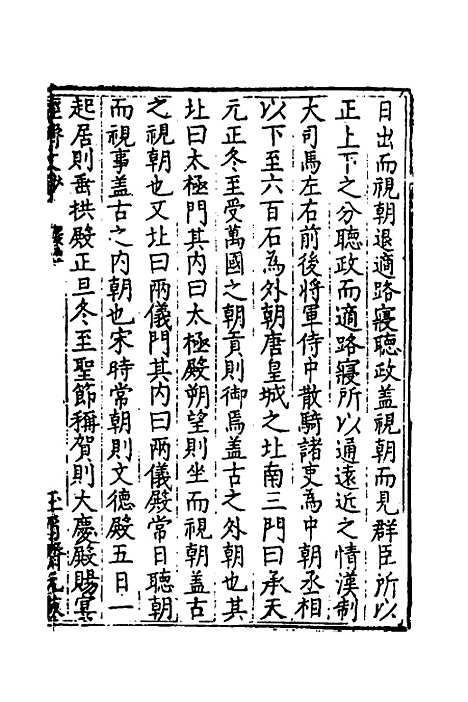 日出而視朝退適路寢聽政蓋視朝而見群臣所以
正上下之分聽政而適路寢所以通遠近之情漢制
大司馬左右前後將軍侍中散騎諸吏為中朝丞相
以下至六百石為外朝唐皇城之北南三門曰承天
元正冬至受萬國之朝貢則御焉蓋古之外朝也其
北曰太極門其内曰太極殿朔望則坐而視朝蓋古
之視朝也又北曰兩儀門其内曰兩儀殿常日聽朝
而視事蓋古之内朝也宋時常朝則文德殿五日一
起居則垂拱殿正旦冬至聖節稱賀則大慶殿賜宴